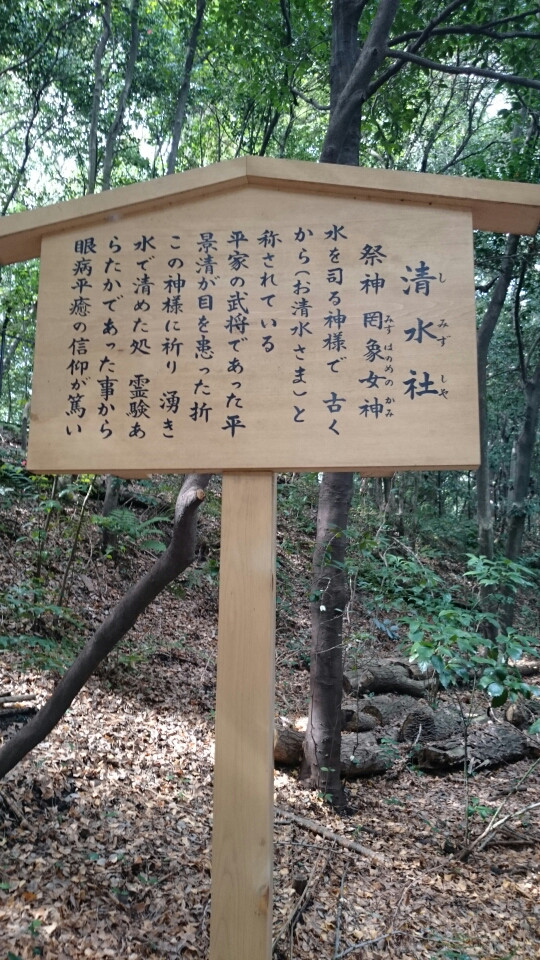 清水社
し みず しゃ
祭神 罔象女神
みず はのめの かみ
水を司る神様で 古く
から(お清水さま)と
称されている
平家の武将であった平
景清が目を患った折
この神様に祈り 湧き
水で清めた処 霊験あ
らたかであった事から
眼病平癒の信仰が篤い